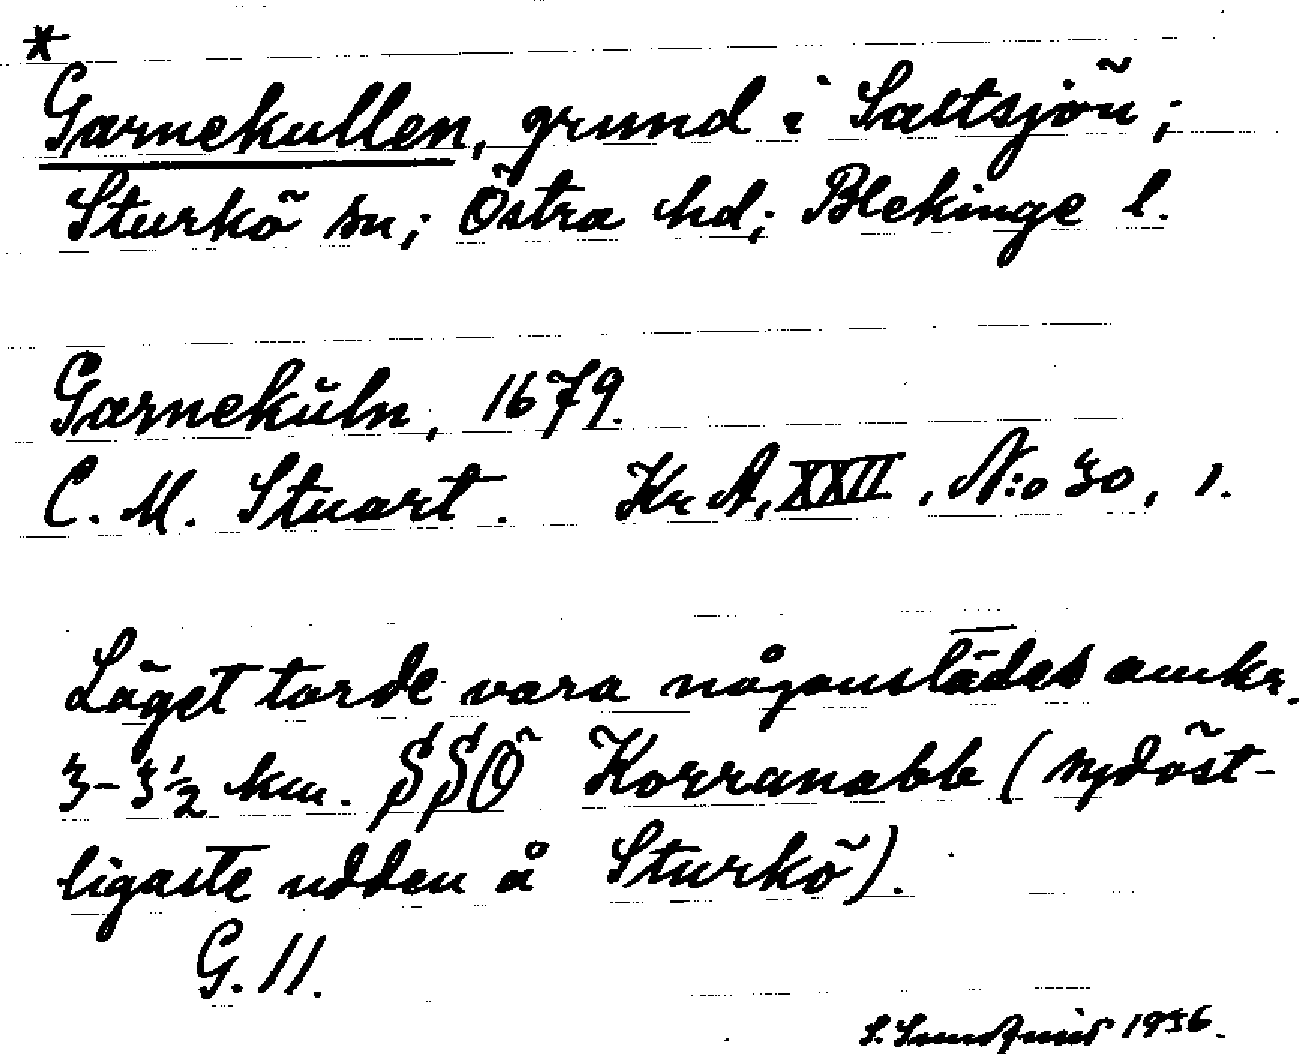 *
Garnekullen, grund i Saltsjön;
Sturkö sn; Östra hd; Blekinge l.
Garnekŭln, 1679.
C. M. Stuart. Kr A, XXII, N:o 30, 1.
Läget torde vara någonstädes omkr.
3-3½ km. SSÖ Korranabb (sydöst-
ligaste udden å Sturkö).
G. 11.
S. 1936.